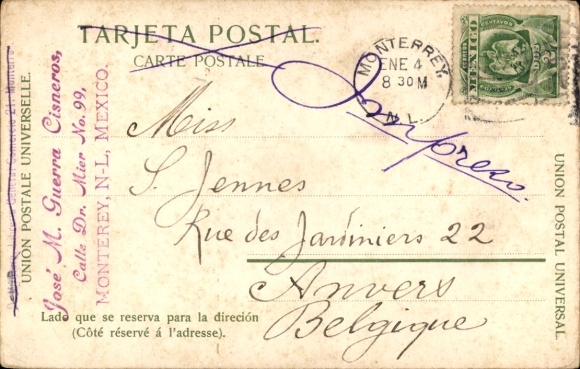 TARJETA POSTAL.
CARTE POSTALE
MONTERREY,
ENE 4
8 30 M
N. L.
MEXICO
Impreso
Miss
S. Jennes
Rue des Jardiniers 22
Anvers
Belgique
Lado que se reserva para la direción
(Côté réservé á l'adresse).
UNION POSTALE UNIVERSELLE.
José M. Guerra Cisneros,
Calle Dr. Mier No. 99,
MONTEREY, N-L, MEXICO.
UNION POSTAL UNIVERSAL